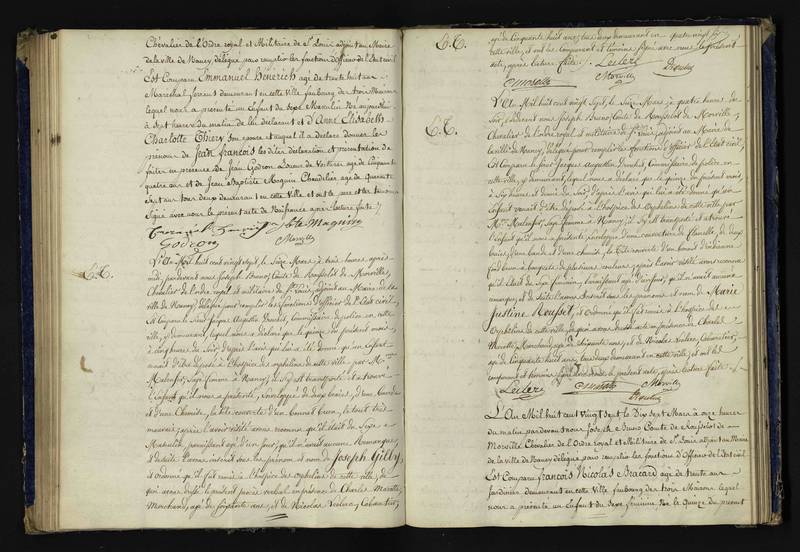 Chevalier de l'Ordre royal et Militaire de St Louis adjoint au Maire
de la ville de Nancy délégué pour remplir les fonctions d'Officier de l'Etat civil
Est Comparu Emmanuel Henerich agé de trente huit ans
Marechal ferrant demeurant en cette Ville faubourg des trois Maisons
lequel nous a présenté un Enfant du sexe Masculin Né aujourd'hui
à sept heures du matin de lui déclarant et d'Anne Elisabeth
Charlotte Thiery son epouse et auquel il a déclaré donner les
prénoms de Jean François les dites déclaration et présentation
faites en présence de Jean Godron agé de Cinquante
quatre ans et de Jean Baptiste Moguin Chandelier agé de quarante
sept ans tous deux demeurant en cette Ville et ont les pere et témoins
Signé avec nous le présent acte de Naissance après lecture faite
Godron
Morvilly
L'An Mil huit cent vingt sept, le Seize Mars, à trois heures après
midi, pardevant nous Joseph Bruno, Comte de Rousselot de Morville,
Chevalier de l'ordre royal et militaire de St Louis, adjoint au Maire de la
ville de Nancy, délégué pour remplir les fonctions d'Officier de l'Etat civil,
Est Comparu le Sieur Jacques Augustin Commissaire de police en cette
ville, y demeurant, lequel nous a déclaré que le quinze du présent mois,
à cinq heures du Soir, d'après l'avis qui lui a été donné qu'un Enfant
venait d'être déposé à l'hospice des orphelins de cette ville par Me
Malenfer, Sage femme à Nancy, il s'y est transporté et a trouvé
l'Enfant qu'il nous a présenté, Enveloppé de deux braies, d'une bande
et d'une Chemise, la tête couverte d'un bonnet le tout très
mauvais; après l'avoir visité avons reconnu qu'il était du Sexe
Masculin, paraissant agé d'un jour; qu'il n'avait aucune Remarque,
de suite l'avons inscrit sous les prénom et nom de Joseph Gilly
et ordonné qu'il fût remis à l'hospice des orphelins de cette ville, de
quoi avons dressé le présent procès verbal en présence de Charles Marotte,
Marchand, agé de soixante ans, et de Nicolas Cabaretier,
agé de Cinquante huit ans, tous deux demeurant en
cette ville, et ont les Comparant et témoins signé avec nous le présent
acte, après lecture faite
Leclerc
Morvilly
L'An Mil huit cent vingt sept, le Seize Mars, à quatre heures du
Soir, pardevant nous Joseph Bruno, Comte de Rousselot de Morville,
Chevalier de l'ordre royal et militaire de St Louis, adjoint au Maire de
la ville de Nancy, délégué pour remplir les fonctions d'Officier de l'Etat civil,
Est Comparu le Sieur Jacques Augustin Commissaire de police en
cette ville, y demeurant, lequel nous a déclaré que le quinze du présent mois
à Six heures et demie du Soir, d'après l'avis qui lui a été donné qu'un
Enfant venait d'être déposé à l'hospice des Orphelins de cette ville par
Me Malenfer, Sage femme à Nancy, il s'y est transporté et a trouvé
l'Enfant qu'il nous a présenté, Enveloppé d'une couverture de flanelle, de deux
braies, d'une bande et d'une chemise, la tête couverte d'un bonnet d'indienne
après l'avoir visité avons reconnu
qu'il était du Sexe féminin, paraissant agé d'un jour, qu'il n'avait aucune
remarque; et de suite l'avons inscrit sous les prénoms et nom de Marie
Justine Rouset, et ordonné qu'il fût remis à l'hospice des
Orphelins de cette ville, de quoi avons dressé acte en présence de Charles
Marotte, Marchand, agé de soixante ans, et de Nicolas Cabaretier,
agé de Cinquante huit ans, tous deux demeurant en cette ville, et ont les
comparant et témoins signé avec nous le présent acte, après lecture faite.
Leclerc
Morvilly
L'An Mil huit cent Vingt sept le Dix sept Mars à onze heures
du matin pardevant nous Joseph Bruno Comte de Rousselot de
Morville Chevalier de l'Ordre royal et Militaire de St Louis adjoint au Maire
de la ville de Nancy délégué pour remplir les fonctions d'Officier de l'Etat civil
Est Comparu François Nicolas Bracard agé de trente ans
Jardinier demeurant en cette Ville faubourg des trois Maisons lequel
nous a présenté un Enfant du Sexe féminin Né le Quinze du présent